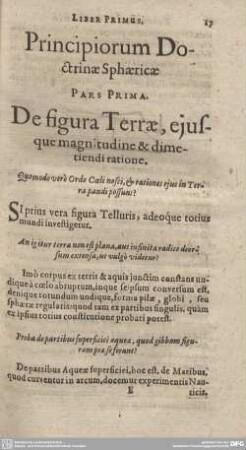 LIBER PRIMUS. 17
Principiorum Do-
ctrinæ Sphæricæ
PARS PRIMA.
De figura Terræ, ejus-
que magnitudine & dime-
tiendi ratione.
Quomodo verò Ordo Cœli nosci, & rationes ejus in Ter-
ra pandi possunt?
SI prius vera figura Telluris, adeoque totius
mundi investigetur.
An igitur terra non est plana, aut infinita radice deor-
sum extensa, ut vulgò videtur?
Imò corpus ex terris & aquis junctim constans un-
dique à cœlo abruptum, inque seipsum conversum est,
denique rotundum undique, forma pilæ, globi, seu
sphæræ regularis: quod tam ex partibus singulis, quàm
ex ipsius totius constitutione probari potest.
Proba de partibus superficiei aqueæ, quod gibbam figu-
ram præ se ferant?
De partibus Aqueæ superficiei, hoc est, de Maribus,
quod curventur in arcum, docemur experimentis Nau-
E ticis,